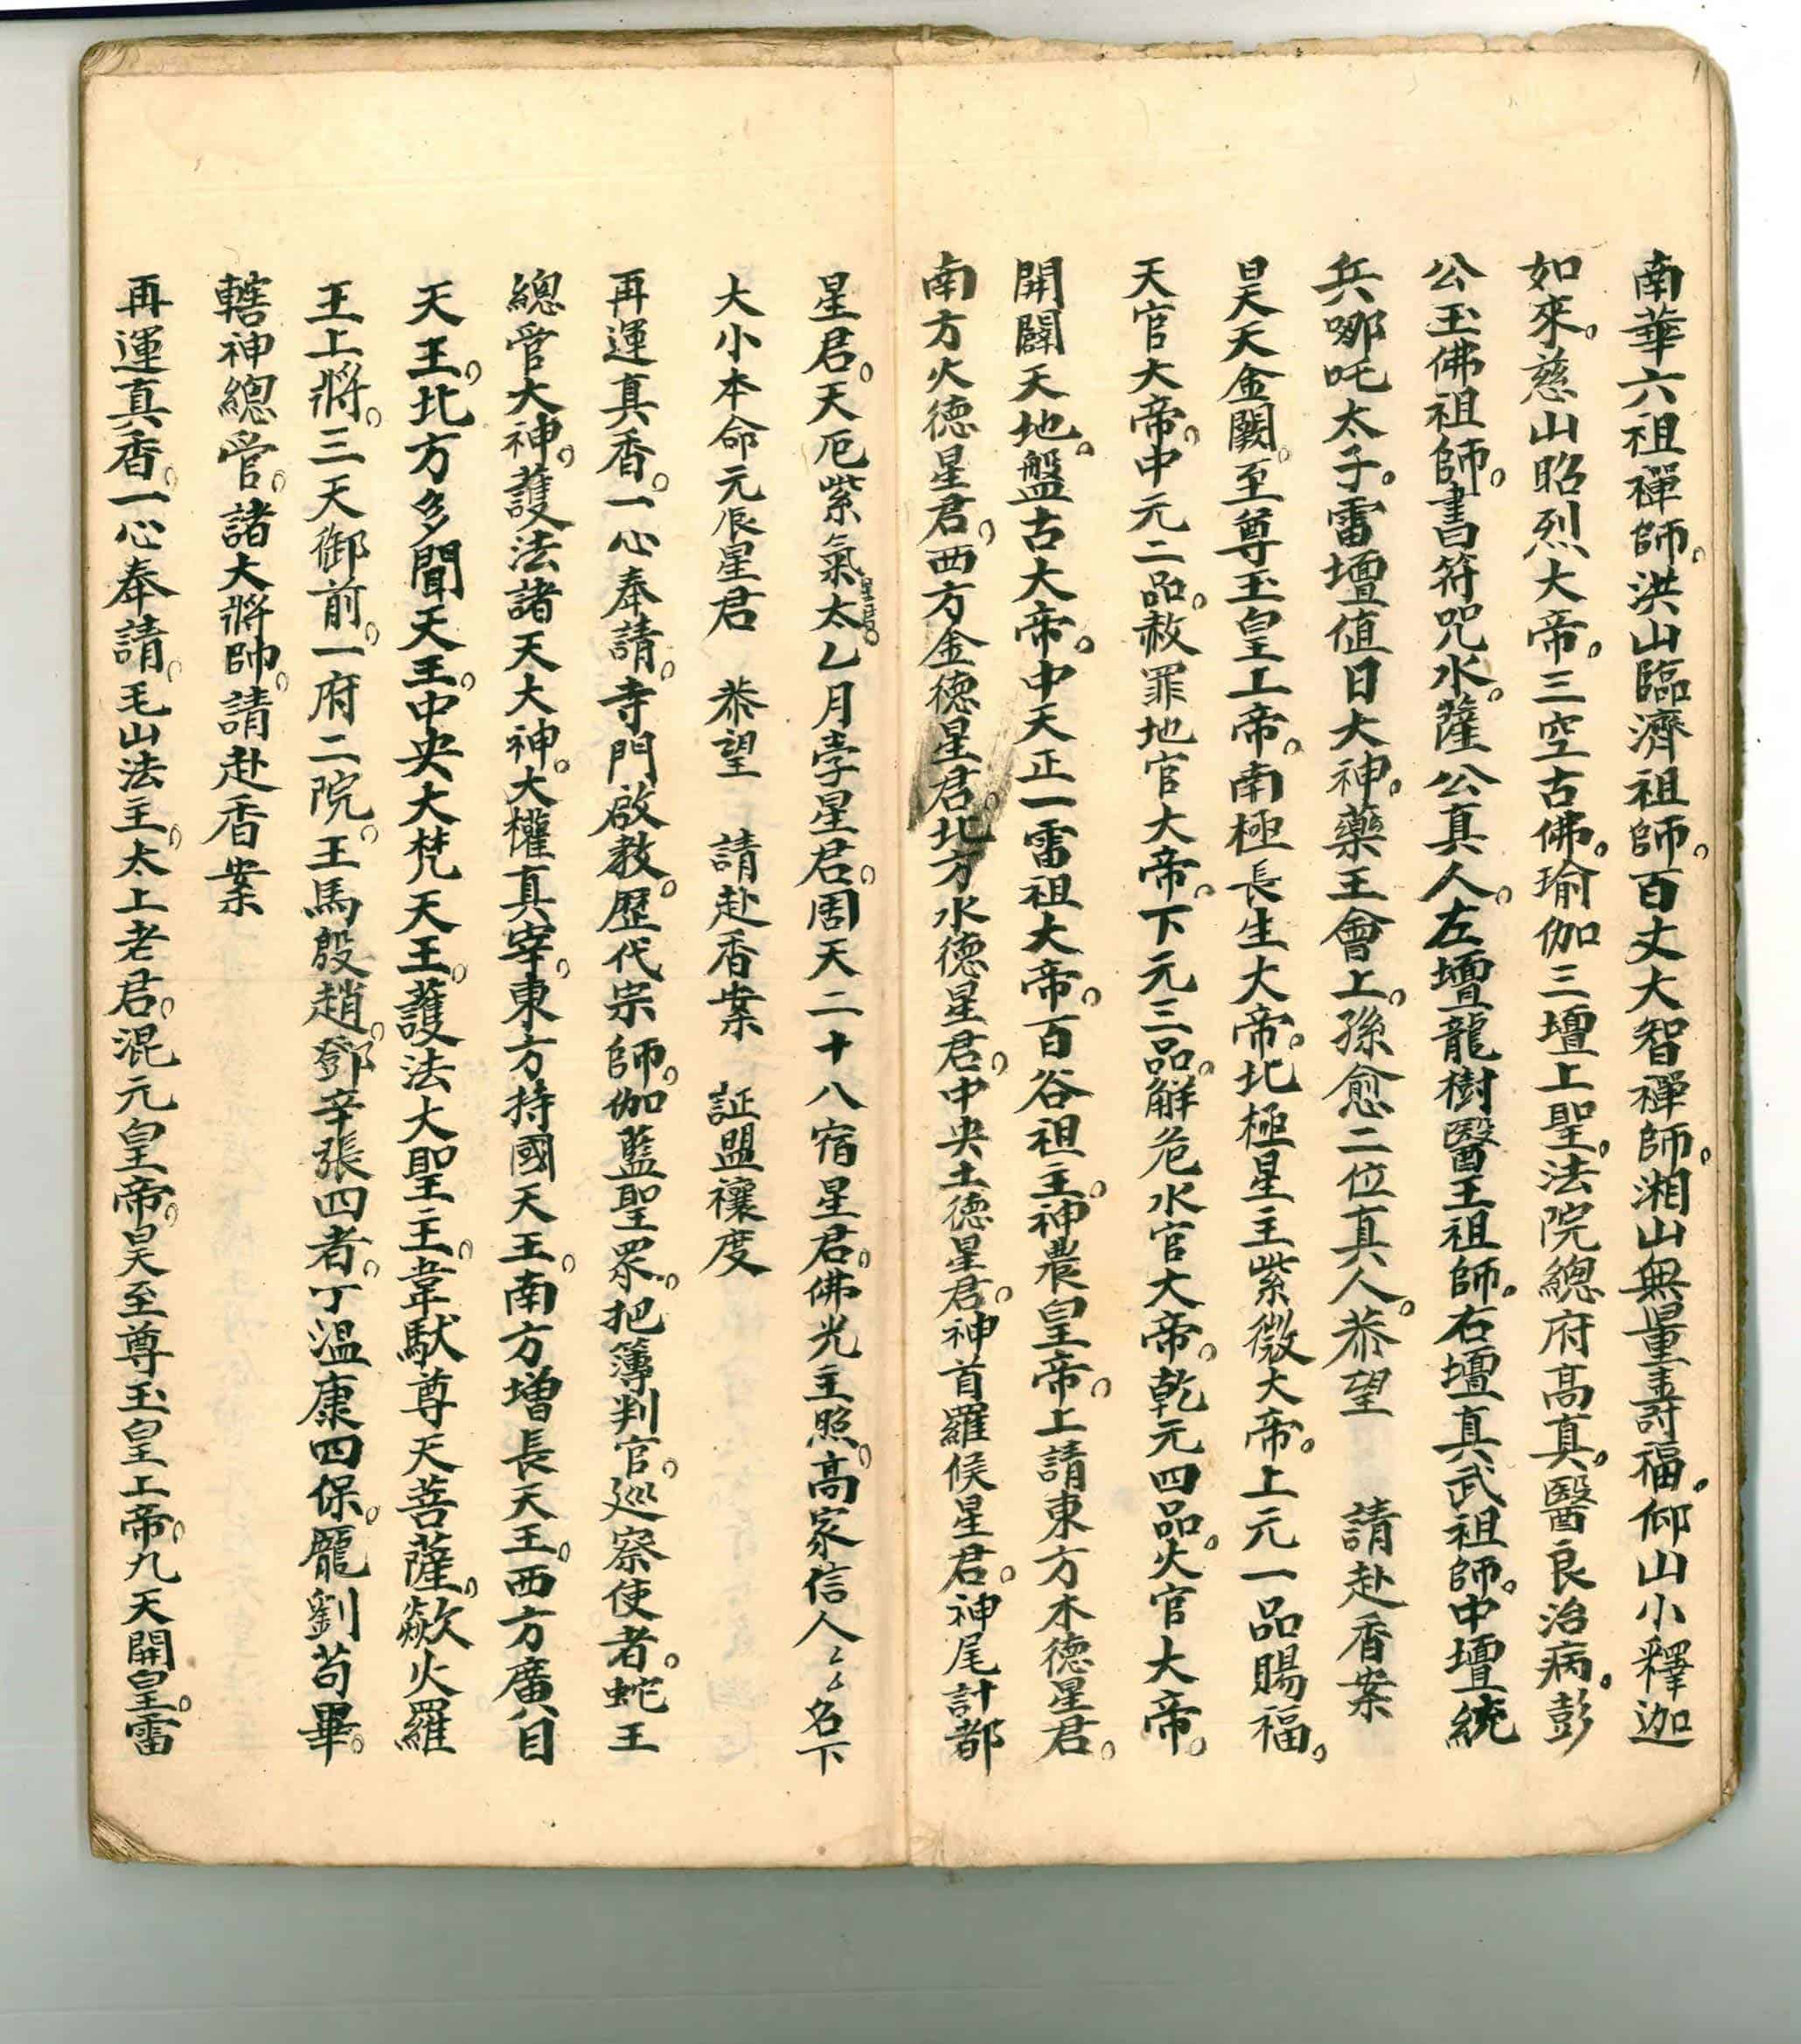 南華六祖禪師。洪山臨濟祖師。百丈大智禪師。湘山無量壽福。仰山小釋迦
如來。慈山昭烈大帝。三空古佛。瑜伽三壇上聖。法院總府高真。醫良治病。彭
公玉佛祖師。書符咒水。薩公真人。左壇龍樹醫王祖師。右壇真武祖師。中壇統
兵哪吒太子。雷壇值日大神。藥王會上。孫愈二位真人。恭望　請赴香案
昊天金闕。至尊玉皇上帝。南極長生大帝。北極星主紫微大帝。上元一品賜福。
天官大帝。中元二品。赦罪地官大帝。下元三品。解危水官大帝。乾元四品。火官大帝。
開闢天地。盤古大帝。中天正一雷祖大帝。百谷祖主。神農皇帝。上請東方木德星君。
南方火德星君。西方金德星君。北方水德星君。中央土德星君。神首羅候星君。神尾計都
星君。天厄紫氣星君。太乙月孛星君。周天二十八宿星君。佛光主照。高家信人〻〻名下
大小本命元辰星君　恭望　請赴香案　証盟禳度
再運真香。一心奉請。寺門啟教。歷代宗師。伽藍聖眾。把簿判官。巡察使者。蛇王
總管大神。護法諸天大神。大權真宰。東方持國天王。南方增長天王。西方廣目
天王。北方多聞天王。中央大梵天王。護法大聖主。韋馱尊天菩薩。歘火羅
王上將。三天御前。一府二院。王馬殷趙。鄧辛張四者。丁温康四保。龐劉苟畢。
轄神總管。諸大將帥。請赴香案
再運真香。一心奉請。毛山法主。太上老君。混元皇帝。昊至尊玉皇上帝。九天開皇。雷